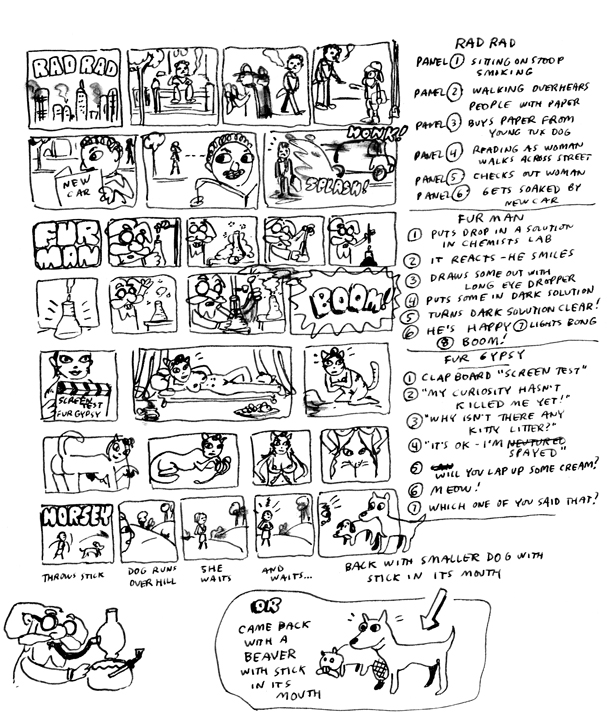 RAD RAD
NEW
CAR
HONK!
SPLASH!
RAD RAD
PANEL 1 SITTING ON STOOP
SMOKING
PANEL 2 WALKING OVERHEARS
PEOPLE WITH PAPER
PANEL 3 BUYS PAPER FROM
YOUNG TUX DOG
PANEL 4 READING AS WOMAN
WALKS ACROSS STREET
PANEL 5 CHECKS OUT WOMAN
PANEL 6 GETS SOAKED BY
NEW CAR
FUR
MAN
BOOM!
FUR MAN
1 PUTS DROP IN A SOLUTION
IN CHEMISTS LAB
2 IT REACTS - HE SMILES
3 DRAWS SOME OUT WITH
LONG EYE DROPPER
4 PUTS SOME IN DARK SOLUTION
5 TURNS DARK SOLUTION CLEAR!
6 HE'S HAPPY 7 LIGHTS BONG
8 BOOM!
SCREEN
TEST
FUR GYPSY
FUR GYPSY
1 CLAPBOARD "SCREEN TEST"
2 "MY CURIOSITY HASN'T
KILLED ME YET!"
3 "WHY ISN'T THERE ANY
KITTY LITTER?"
4 "IT'S OK - I'M NEUTURED
SPAYED"
5 WILL YOU LAP UP SOME CREAM?
6 MEOW!
7 WHICH ONE OF YOU SAID THAT?
HORSEY
THROWS STICK
DOG RUNS
OVER HILL
SHE
WAITS
AND
WAITS...
BACK WITH SMALLER DOG WITH
STICK IN ITS MOUTH
OR
CAME BACK
WITH A
BEAVER
WITH STICK
IN ITS
MOUTH